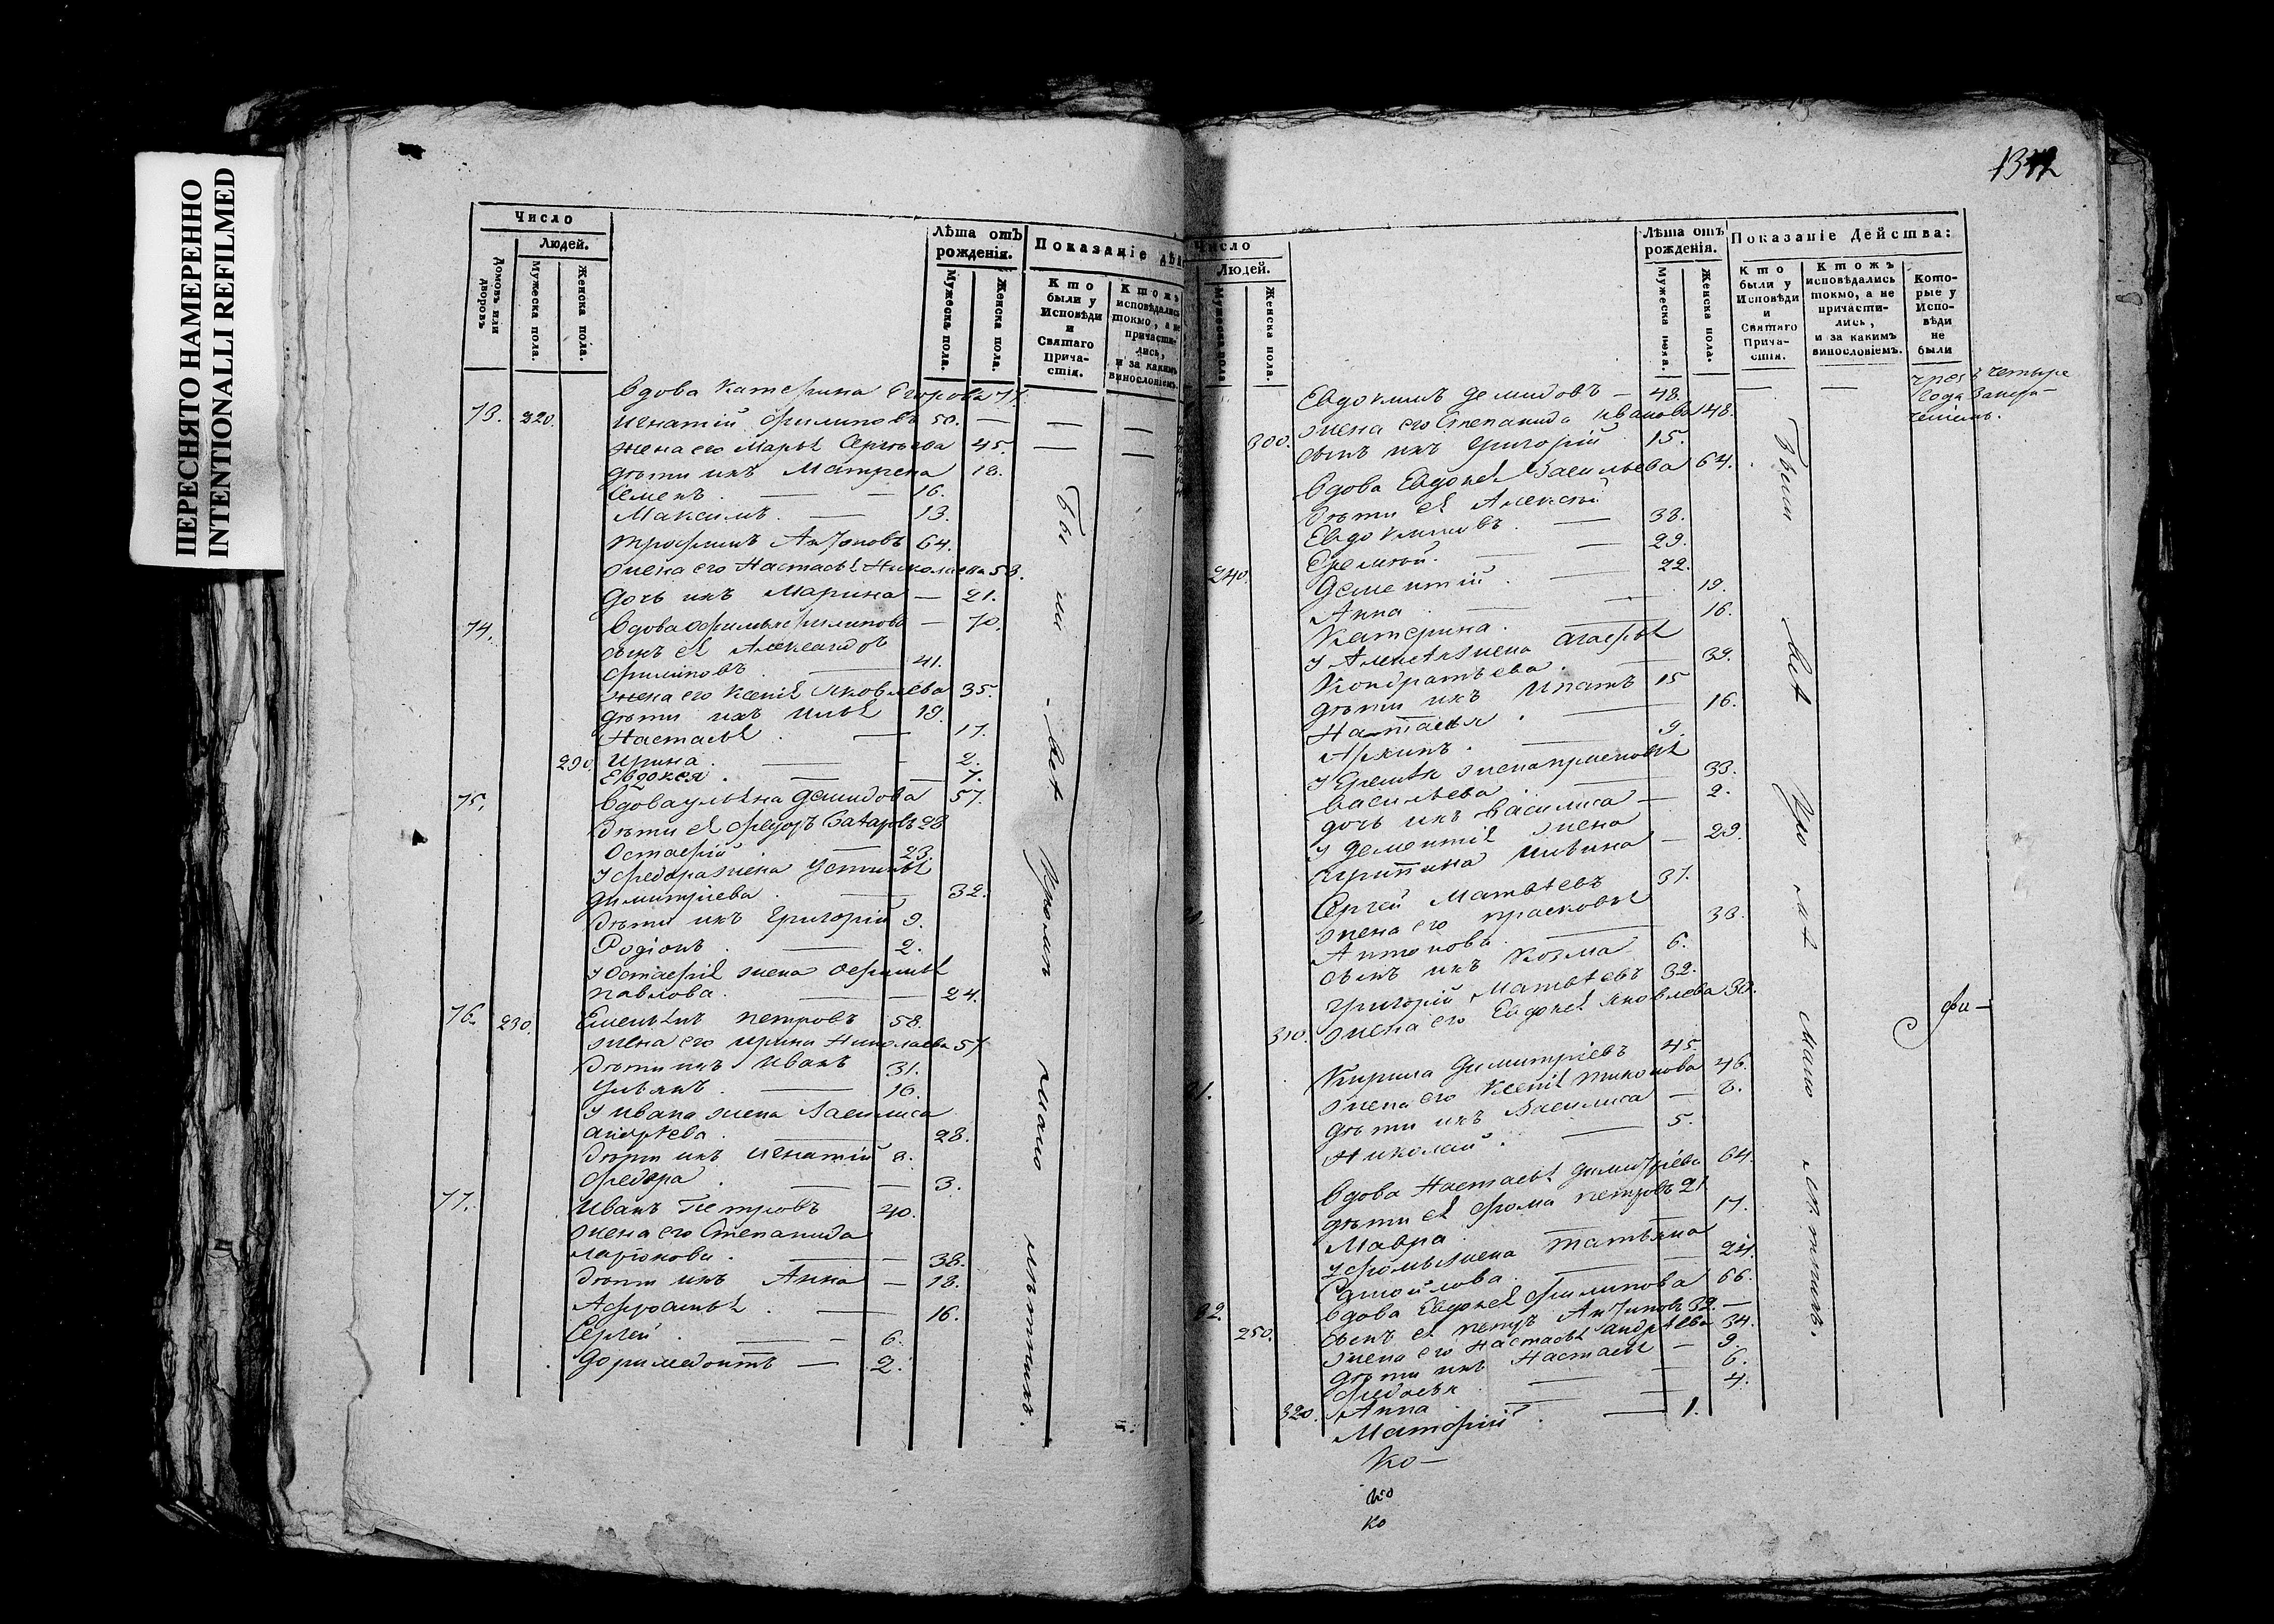 ПЕРЕСНЯТО НАМЕРЕННО
INTENTIONALLI REFILMED
Число
Людей.
Домовъ или дворовъ
Мужеска пола.
Женска пола.
Лѣта отъ рожденія.
Мужеска пола.
Женска пола.
Показаніе дѣй
Кто были у Исповѣди и Святаго Прича-стія.
Ктожъ исповѣдались токмо, а не причасти-лись, и за какимъ винословіемъ.
Вдова Катерина Егорова 77.
73. 220. Игнатій Филиповъ 50. —
жена его Марья Сергѣева 45.
дѣти ихъ Матрена 18.
Семенъ. — 16.
Максимъ. — 13.
Трофимъ Антоновъ 64.
жена его Настасья Николаева 53.
дочь ихъ Марина — 21.
74. Вдова Филипова — 70.
сынъ ея Александръ
Филиповъ. — 41.
жена его Ксенія Яковлева 35.
дѣти ихъ Илья 19.
Настасья. — 17.
290. Ирина. — 2.
Евдокея. — 7.
75. Вдова Ульяна Демидова 57.
дѣти ея Федоръ Захаровъ 28
Остафій — 23.
у Федора жена Устинья
Димитріева. — 32.
дѣти ихъ Григорій 9.
Родіонъ. — 2.
у Остафія жена Офимья
Павлова. — 24.
76. 230. Емельянъ Петровъ 58.
жена его Ирина Николаева 57
дѣти ихъ Иванъ 31.
Ульянъ. — 16.
у Ивана жена Василиса
Андреева. — 28.
дѣти ихъ Игнатій 8.
Федора. — 3.
77. Иванъ Петровъ 40.
жена его Степанида
Ларіонова. — 38.
дѣти ихъ Анна — 18.
Афросинья. — 16.
Сергей. — 6.
Доримедонтъ — 2.
Были всѣ Кромѣ мало лѣтнихъ.
1342
Число
Людей.
Мужеска пола
Женска пола.
Лѣта отъ рожденія.
Мужеска пола.
Женска пола.
Показаніе Действа:
Кто были у Исповѣди и Святаго Прича-стія.
Ктожъ исповѣдались токмо, а не причасти-лись, и за какимъ винословіемъ.
Кото-рые у Испо-вѣди не были
Евдокимъ Демидовъ — 48.
четыре
года
300. жена его Степанида Иванова 48.
сынъ ихъ Григорій 15.
Вдова Евдокея Васильева 64.
дѣти ея Алексѣй
Евдокимовъ. — 38.
Еремѣй. — 29.
240. Дементій. — 22.
Анна. — 19.
Катерина. — 16.
у Алексѣя жена Агафья
Кондратьева. — 39.
дѣти ихъ Ипатъ 15
Настасья. — 16.
Архипъ. — 9.
у Еремѣя жена Прасковья
Васильева. — 33.
дочь ихъ Василиса — 2.
у Дементія жена
Ильина — 29.
Сергей Матвѣевъ 37.
жена его Прасковья
Антонова. — 38.
сынъ ихъ Козма 6.
Григорій Матвѣевъ 32.
310. жена его Евдокея Яковлева 30.
Кирила Димитріевъ 45.
жена его Ксенія Тихонова 46.
дѣти ихъ Василиса — 8.
Николай. — 5.
Вдова Настасья Димитріева 64.
дѣти ея Фома Петровъ 21
Мавра. 17.
у Фомы жена Татьяна
Самойлова. — 24.
82. Вдова Евдокея Филипова 66.
250. сынъ ея Петръ Антиповъ 32. —
жена его Настасья Андреева 34.
дѣти ихъ Настасья — 9.
Федосья — 6.
320. Анна. — 4.
Матфій. — 1.
Ко—
ко
ко
Были всѣ Кромѣ Мало лѣтнихъ.
фи—